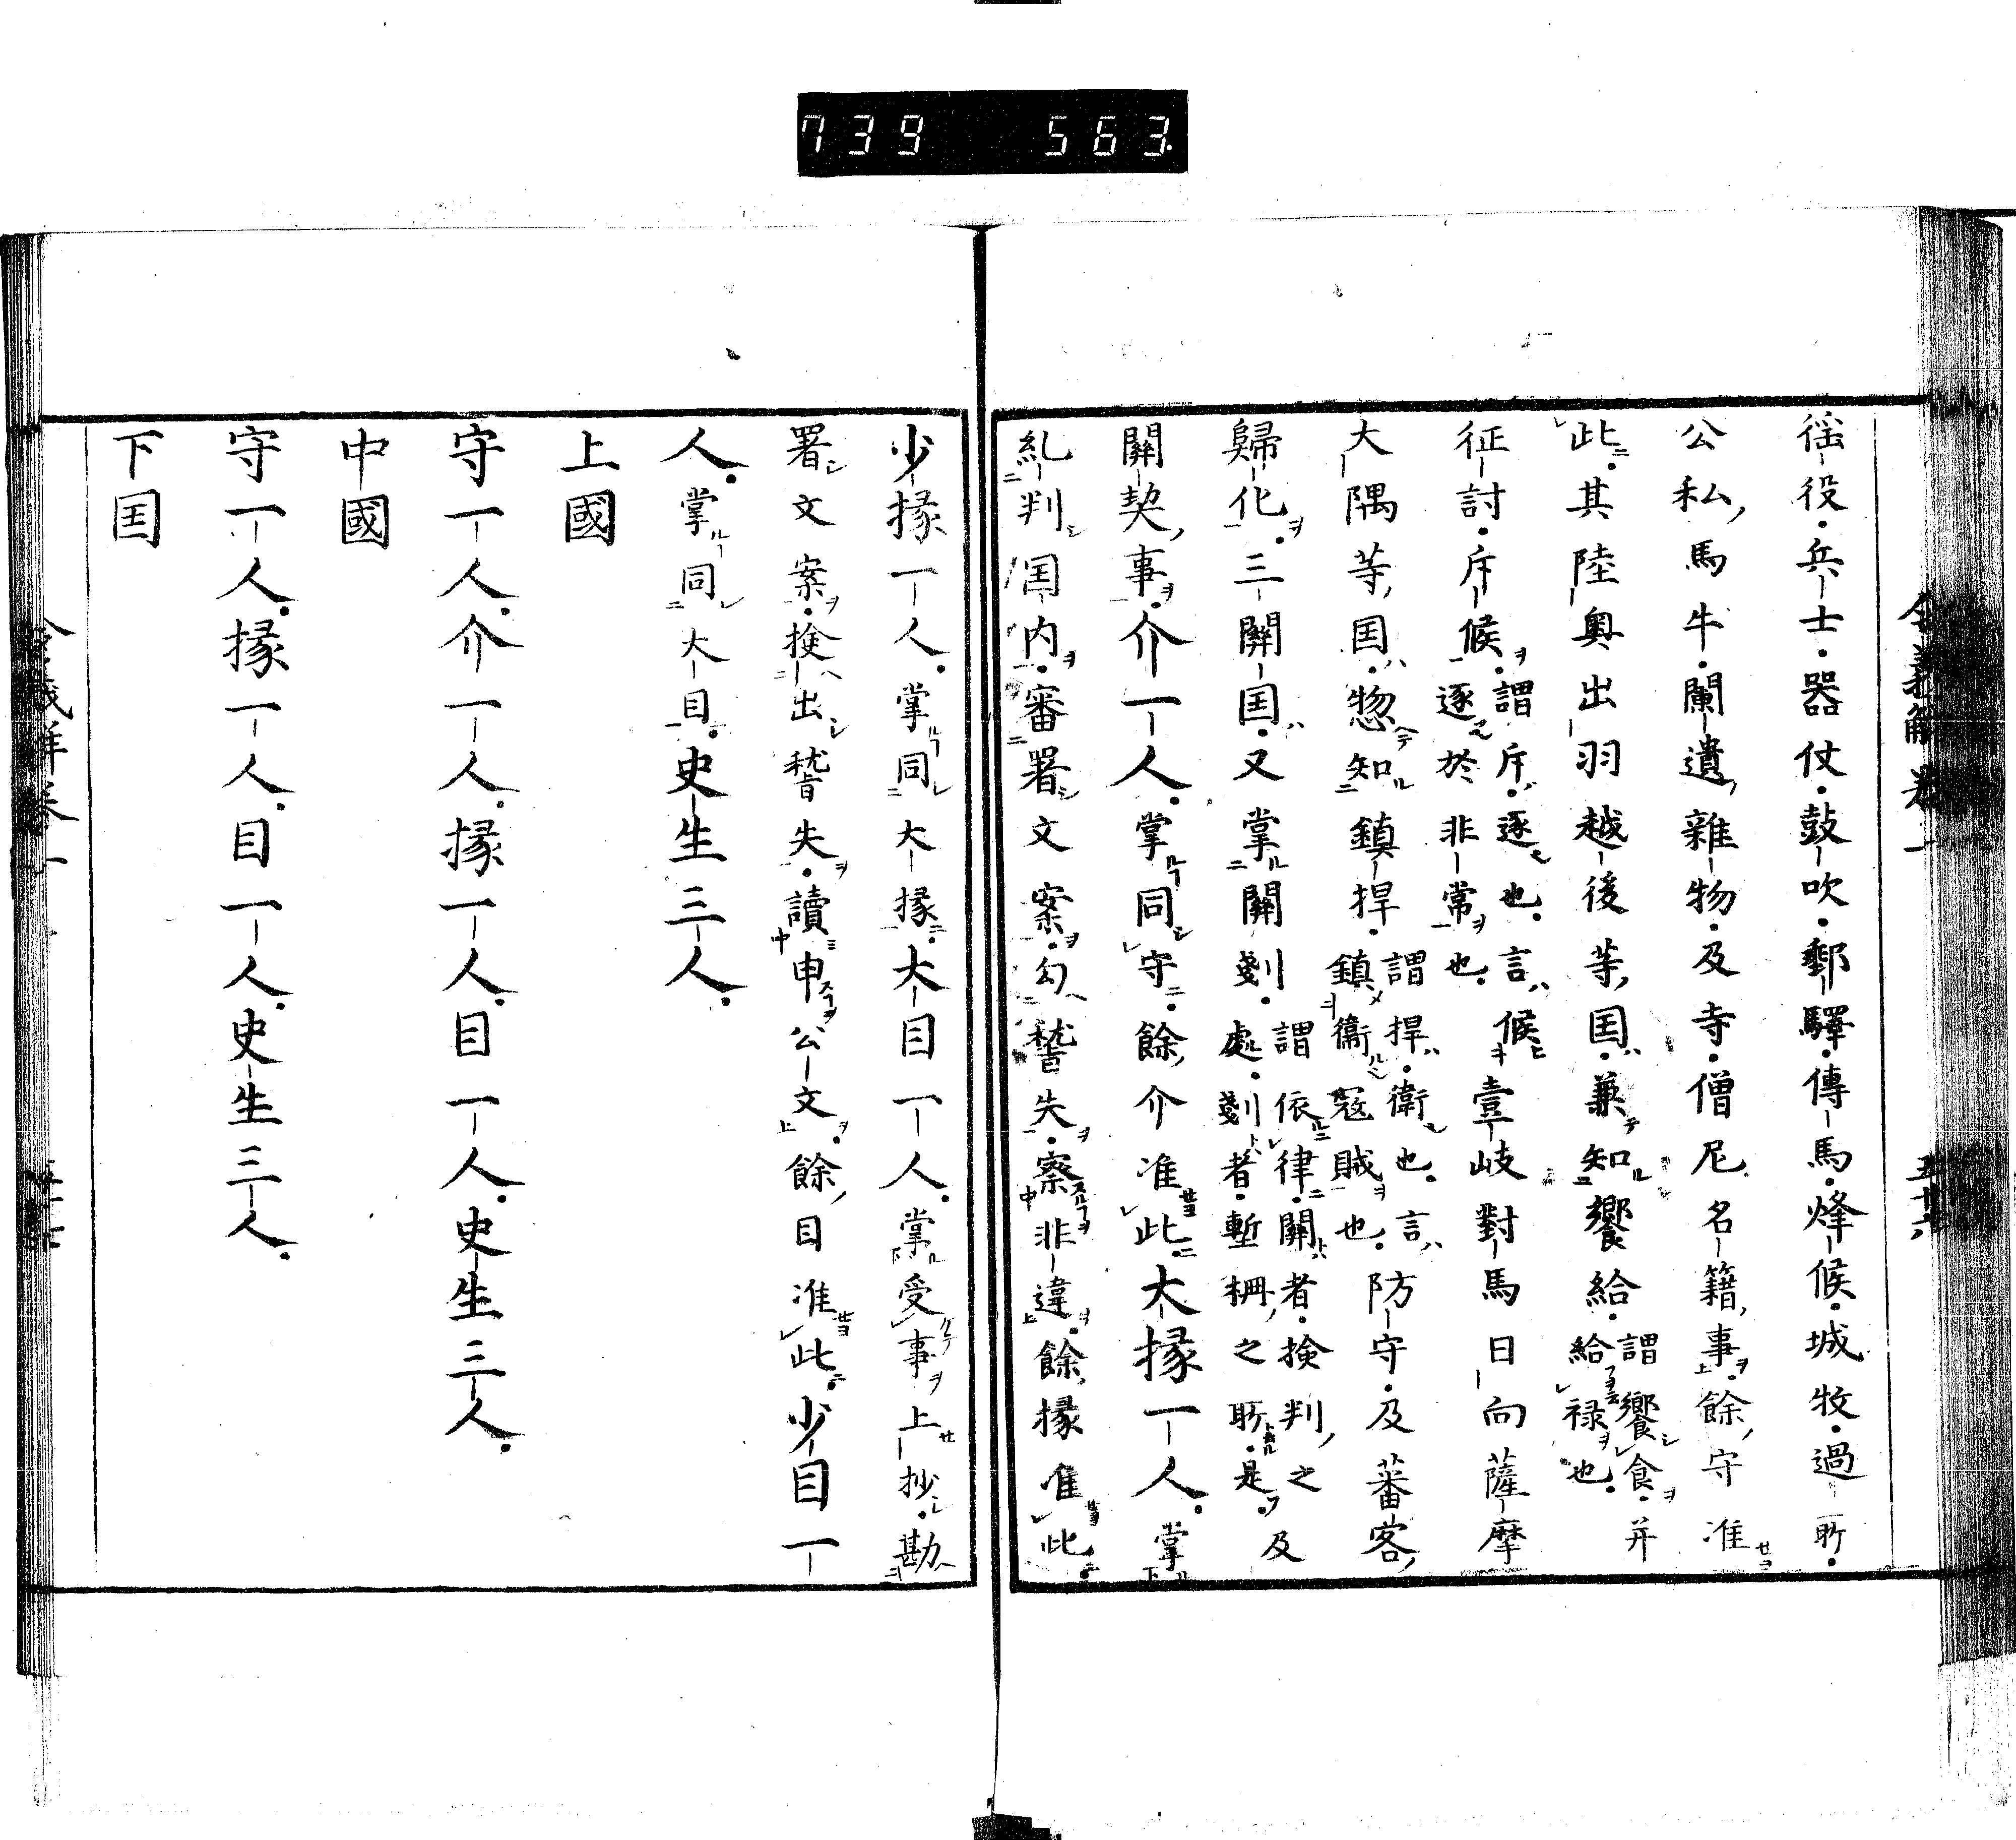 739 563
徭役兵士器仗鼓吹郵驛傳馬烽候城牧過所
公私馬牛闌遺雜物及寺僧尼名籍事餘守准
此其陸奧出羽越後等国兼知饗給謂饗食并給禄也
征討斥候謂斥逐也言候逐於非常也壹岐對馬日向薩摩
大隅等国惣知鎮捍謂捍衛也言鎮衞寇賊也防守及蕃客
歸化三關国又掌關剗謂依律關者檢判之處剗者塹柵之所是及
關契事介一人掌同守餘介准此大掾一人掌
糺判国内審署文案勾嵆失察非違餘掾准此
少掾一人掌同大掾大目一人掌受事上抄勘
署文案撿出嵆失讀申公文餘目准此少目一
人掌同大目史生三人
上國
守一人介一人掾一人目一人史生三人
中國
守一人掾一人目一人史生三人
下国